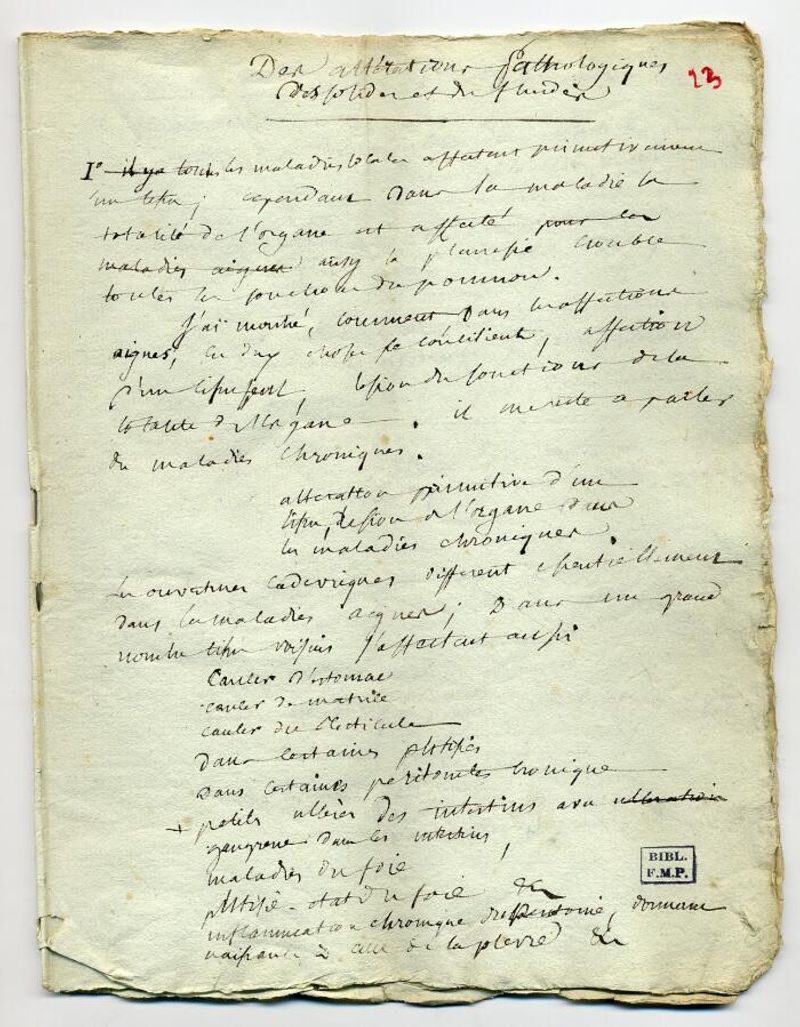 Des altérations Pathologiques
des solides et des fluides
23
I° il y a toutes les maladies locales affectent primitivement
un tissu; cependant dans la maladie la
totalité de l'organe est affecté pour les
maladies aigues ausy la pleuresie trouble
toutes les fonctions du poumon.
J'ai montré, comment dans les affections
aigues, les deux choses se concilient, affection
d'un tissu seul, lesion des fonctions de la
totalité de l'organe. il me reste a parler
des maladies chroniques.
alteration primitive d'un
tissu, lesion de l'organe dans
les maladies chroniques.
Les ouvertures cadavériques different essentiellement
dans les maladies aigues; Dans un grand
nombre tissu voisins s'affectent aussi
Cancer d'estomac
cancer de matrice
cancer du testicule
dans certaines phtisies
dans certaines peritonites cronique
+ petits ulcères des intestins avec ulceration
gangrene dans les intestins,
maladies du foie
phtisie - etat du foie &c
inflammation chronique du peritoine, donnant
naissance à celle de la plevre &c
BIBL.
F.M.P.